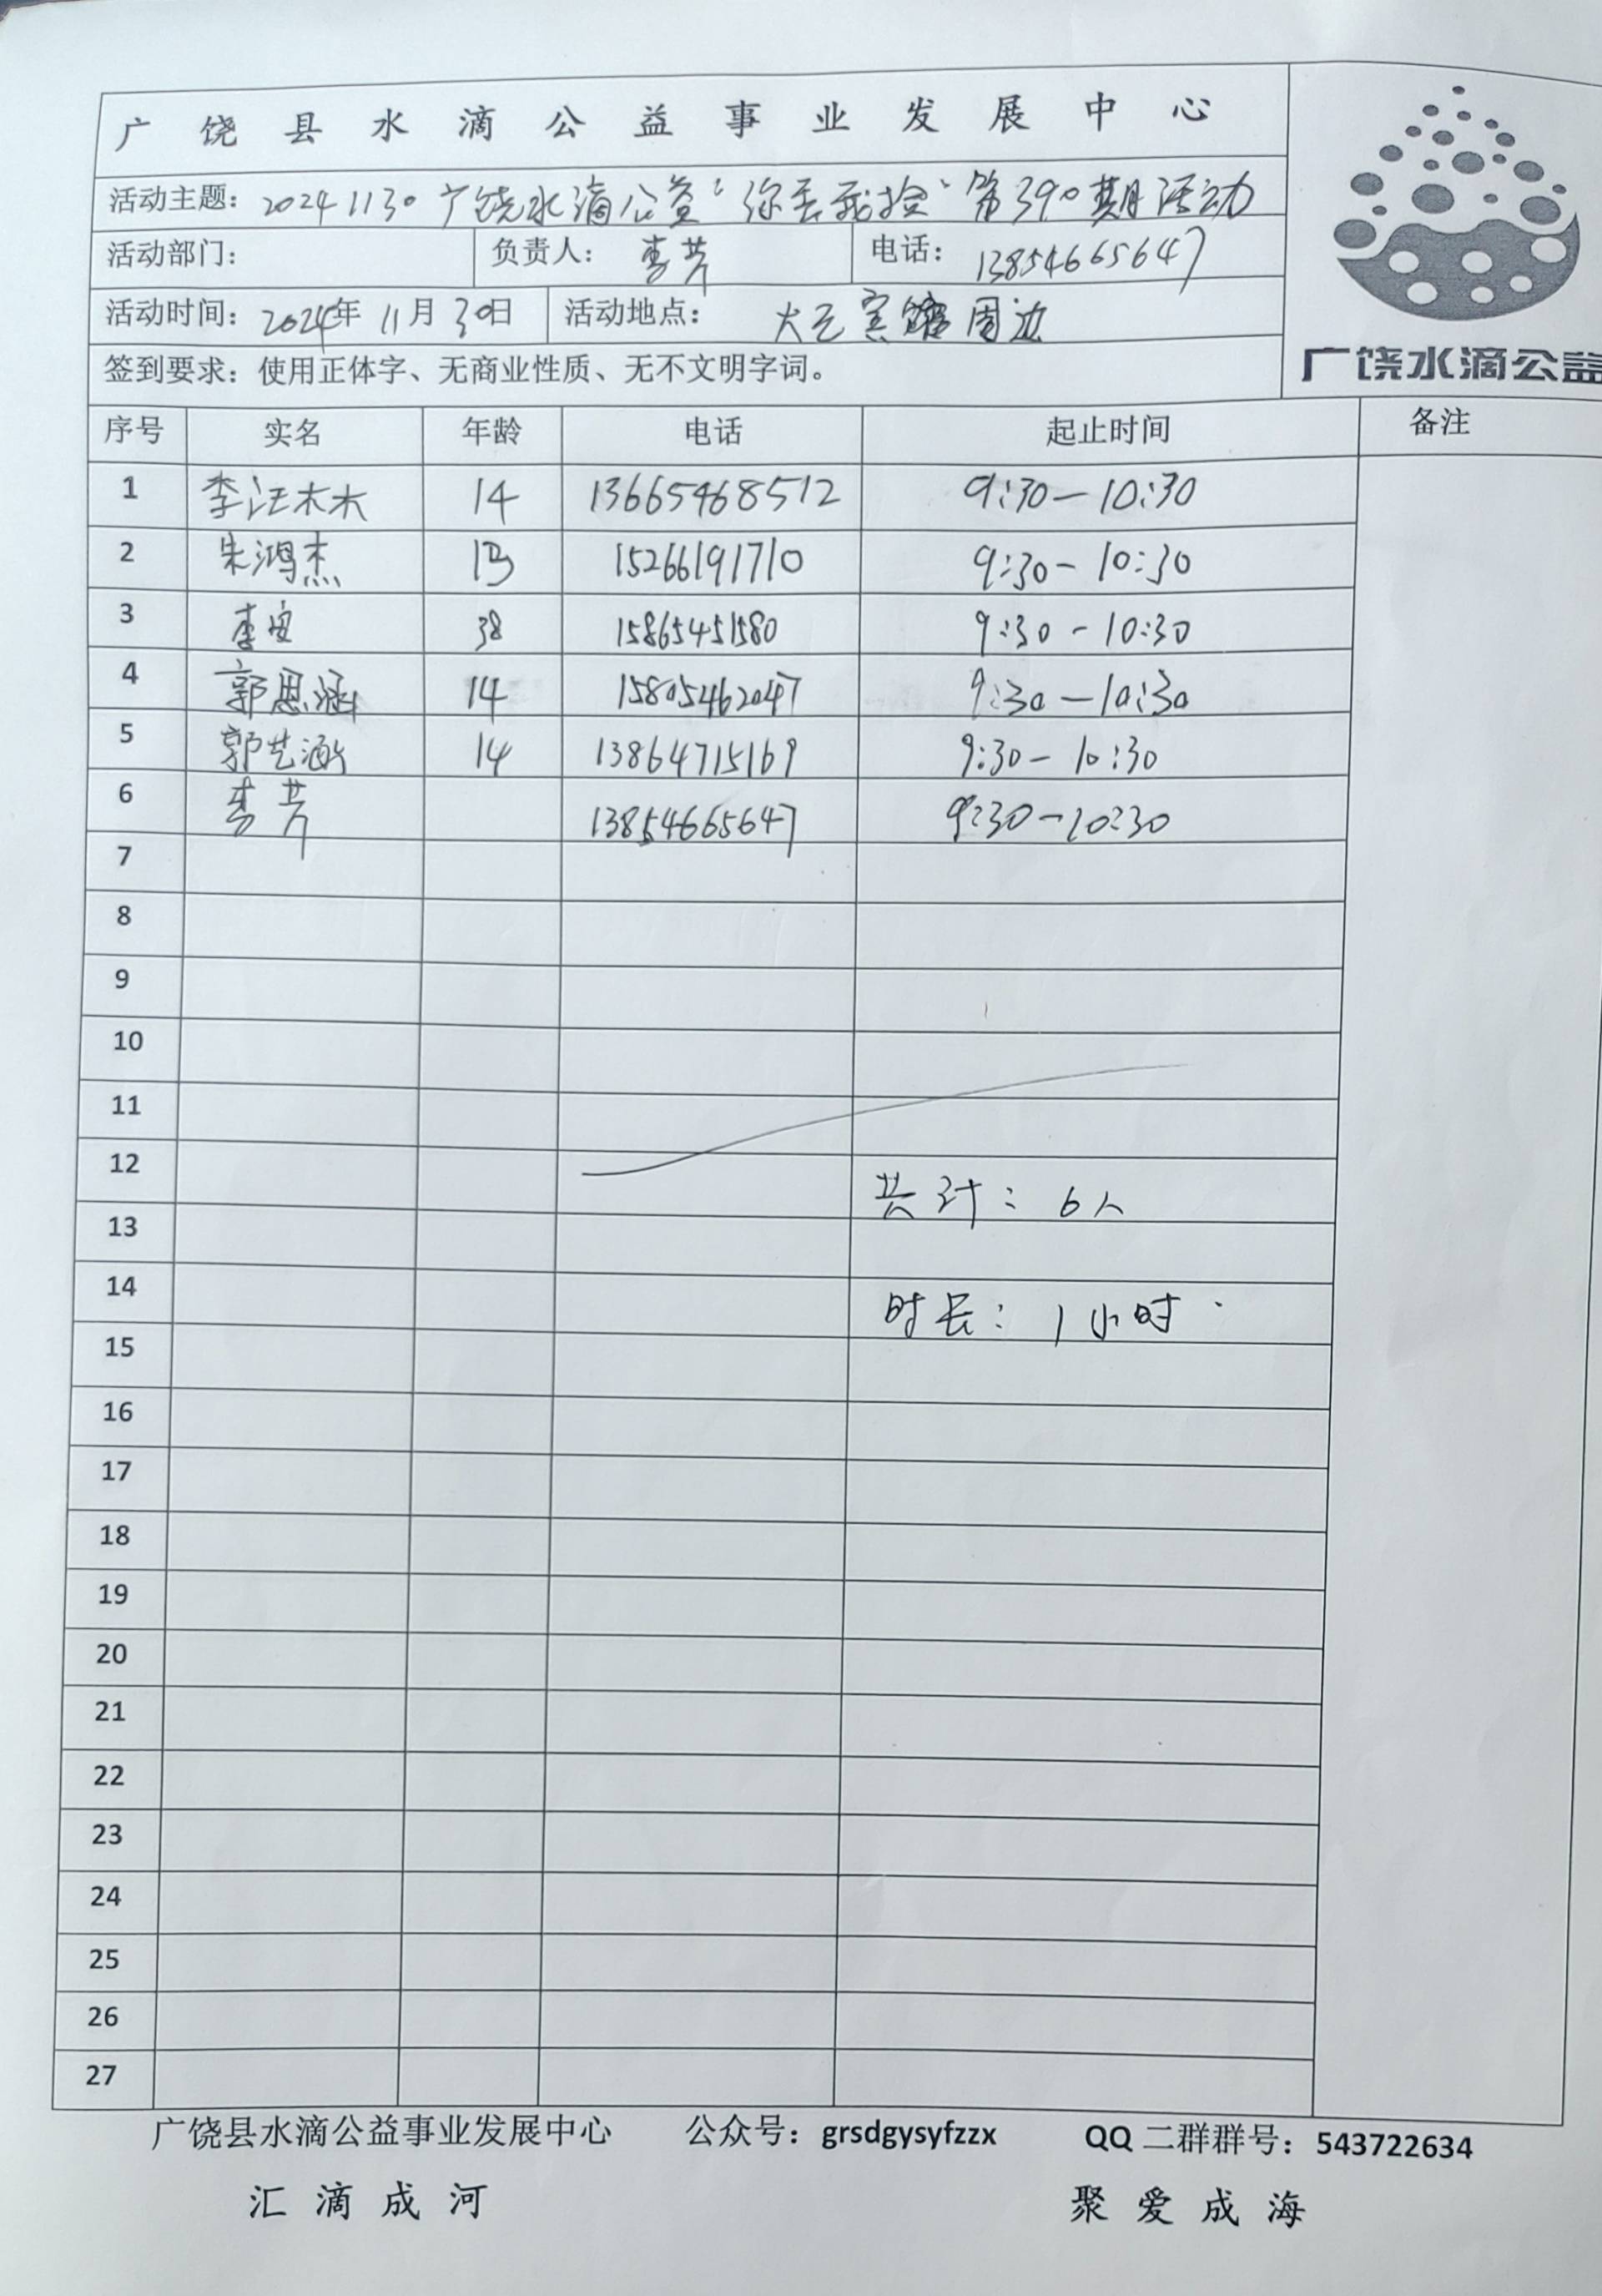 广饶县水滴公益事业发展中心
活动主题：20241130广饶水滴公益“你丢我捡”第390期活动
活动部门： 负责人：李芹 电话：13854665647
活动时间：2024年11月30日 活动地点：大元宾馆周边
签到要求：使用正体字、无商业性质、无不文明字词。
广饶水滴公益
序号 实名 年龄 电话 起止时间 备注
1 李汪木木 14 13665468512 9:30—10:30
2 朱鸿杰 13 15266191710 9:30-10:30
3 李 38 15865451580 9:30-10:30
4 郭思涵 14 15805462047 9:30—10:30
5 郭艺涵 14 13864715169 9:30-10:30
6 李芹 13854665647 9:30-10:30
7
8
9
10
11
12 共计：6人
13
14 时长：1小时
15
16
17
18
19
20
21
22
23
24
25
26
27
广饶县水滴公益事业发展中心 公众号：grsdgysyfzzx QQ二群群号：543722634
汇滴成河 聚爱成海